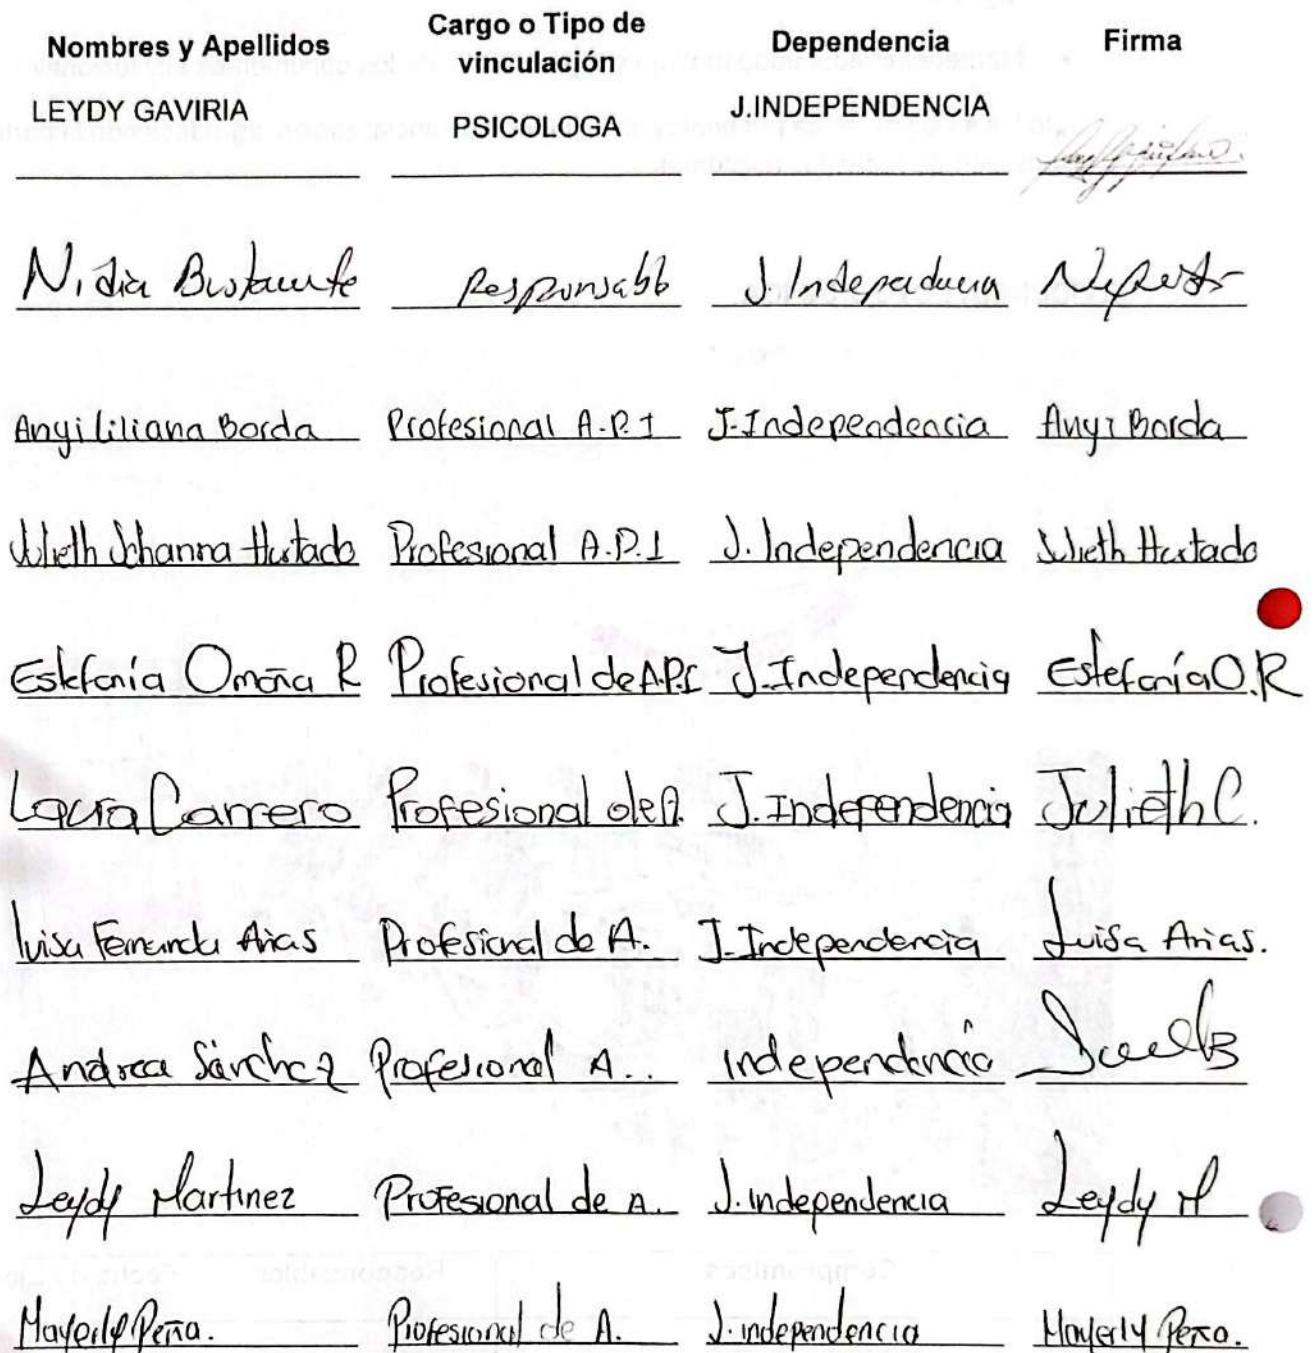 Nombres y Apellidos Cargo o Tipo de vinculación Dependencia Firma
LEYDY GAVIRIA PSICOLOGA J.INDEPENDENCIA
Nidia Bustamante Responsable J. Independencia
Anyi Liliana Borda Profesional A.P.I J. Independencia Anyi Borda
Julieth Johanna Hurtado Profesional A.P.I J. Independencia Julieth Hurtado
Estefanía Omaña R Profesional de A.P.I J. Independencia Estefanía O.R
Laura Carrero Profesional de A. J. Independencia Julieth C.
Luisa Fernanda Arias Profesional de A. J. Independencia Luisa Arias.
Andrea Sánchez Profesional A.. independencia
Leydy Martinez Profesional de A. J. independencia Leydy M
Mayerly Peña. Profesional de A. J. independencia Mayerly Peña.